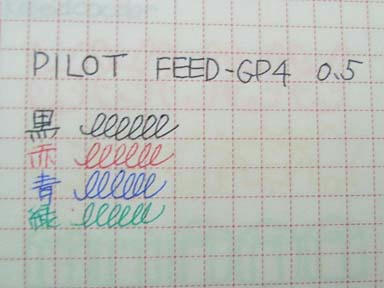 PILOT FEED-GP4 0.5
黒
赤
青
緑